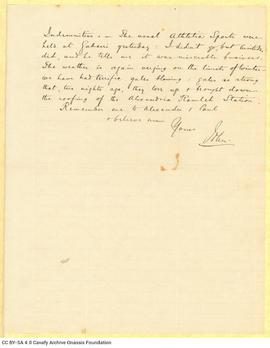 Indemnities. — The usual Athletic Sports were
held at Gabari yesterday: I didn't go, but Aristide
did, and he tells me it was miserable business.
The weather is again verging on the limits of winter.
We have had terrific gales blowing: gales so strong
that, two nights ago, they tore up & brought down
the roofing of the Alexandria Ramleh Station.
Remember me to Alexander & Paul
& believe me
Yours
John
CC BY-SA 4.0 Cavafy Archive Onassis Foundation